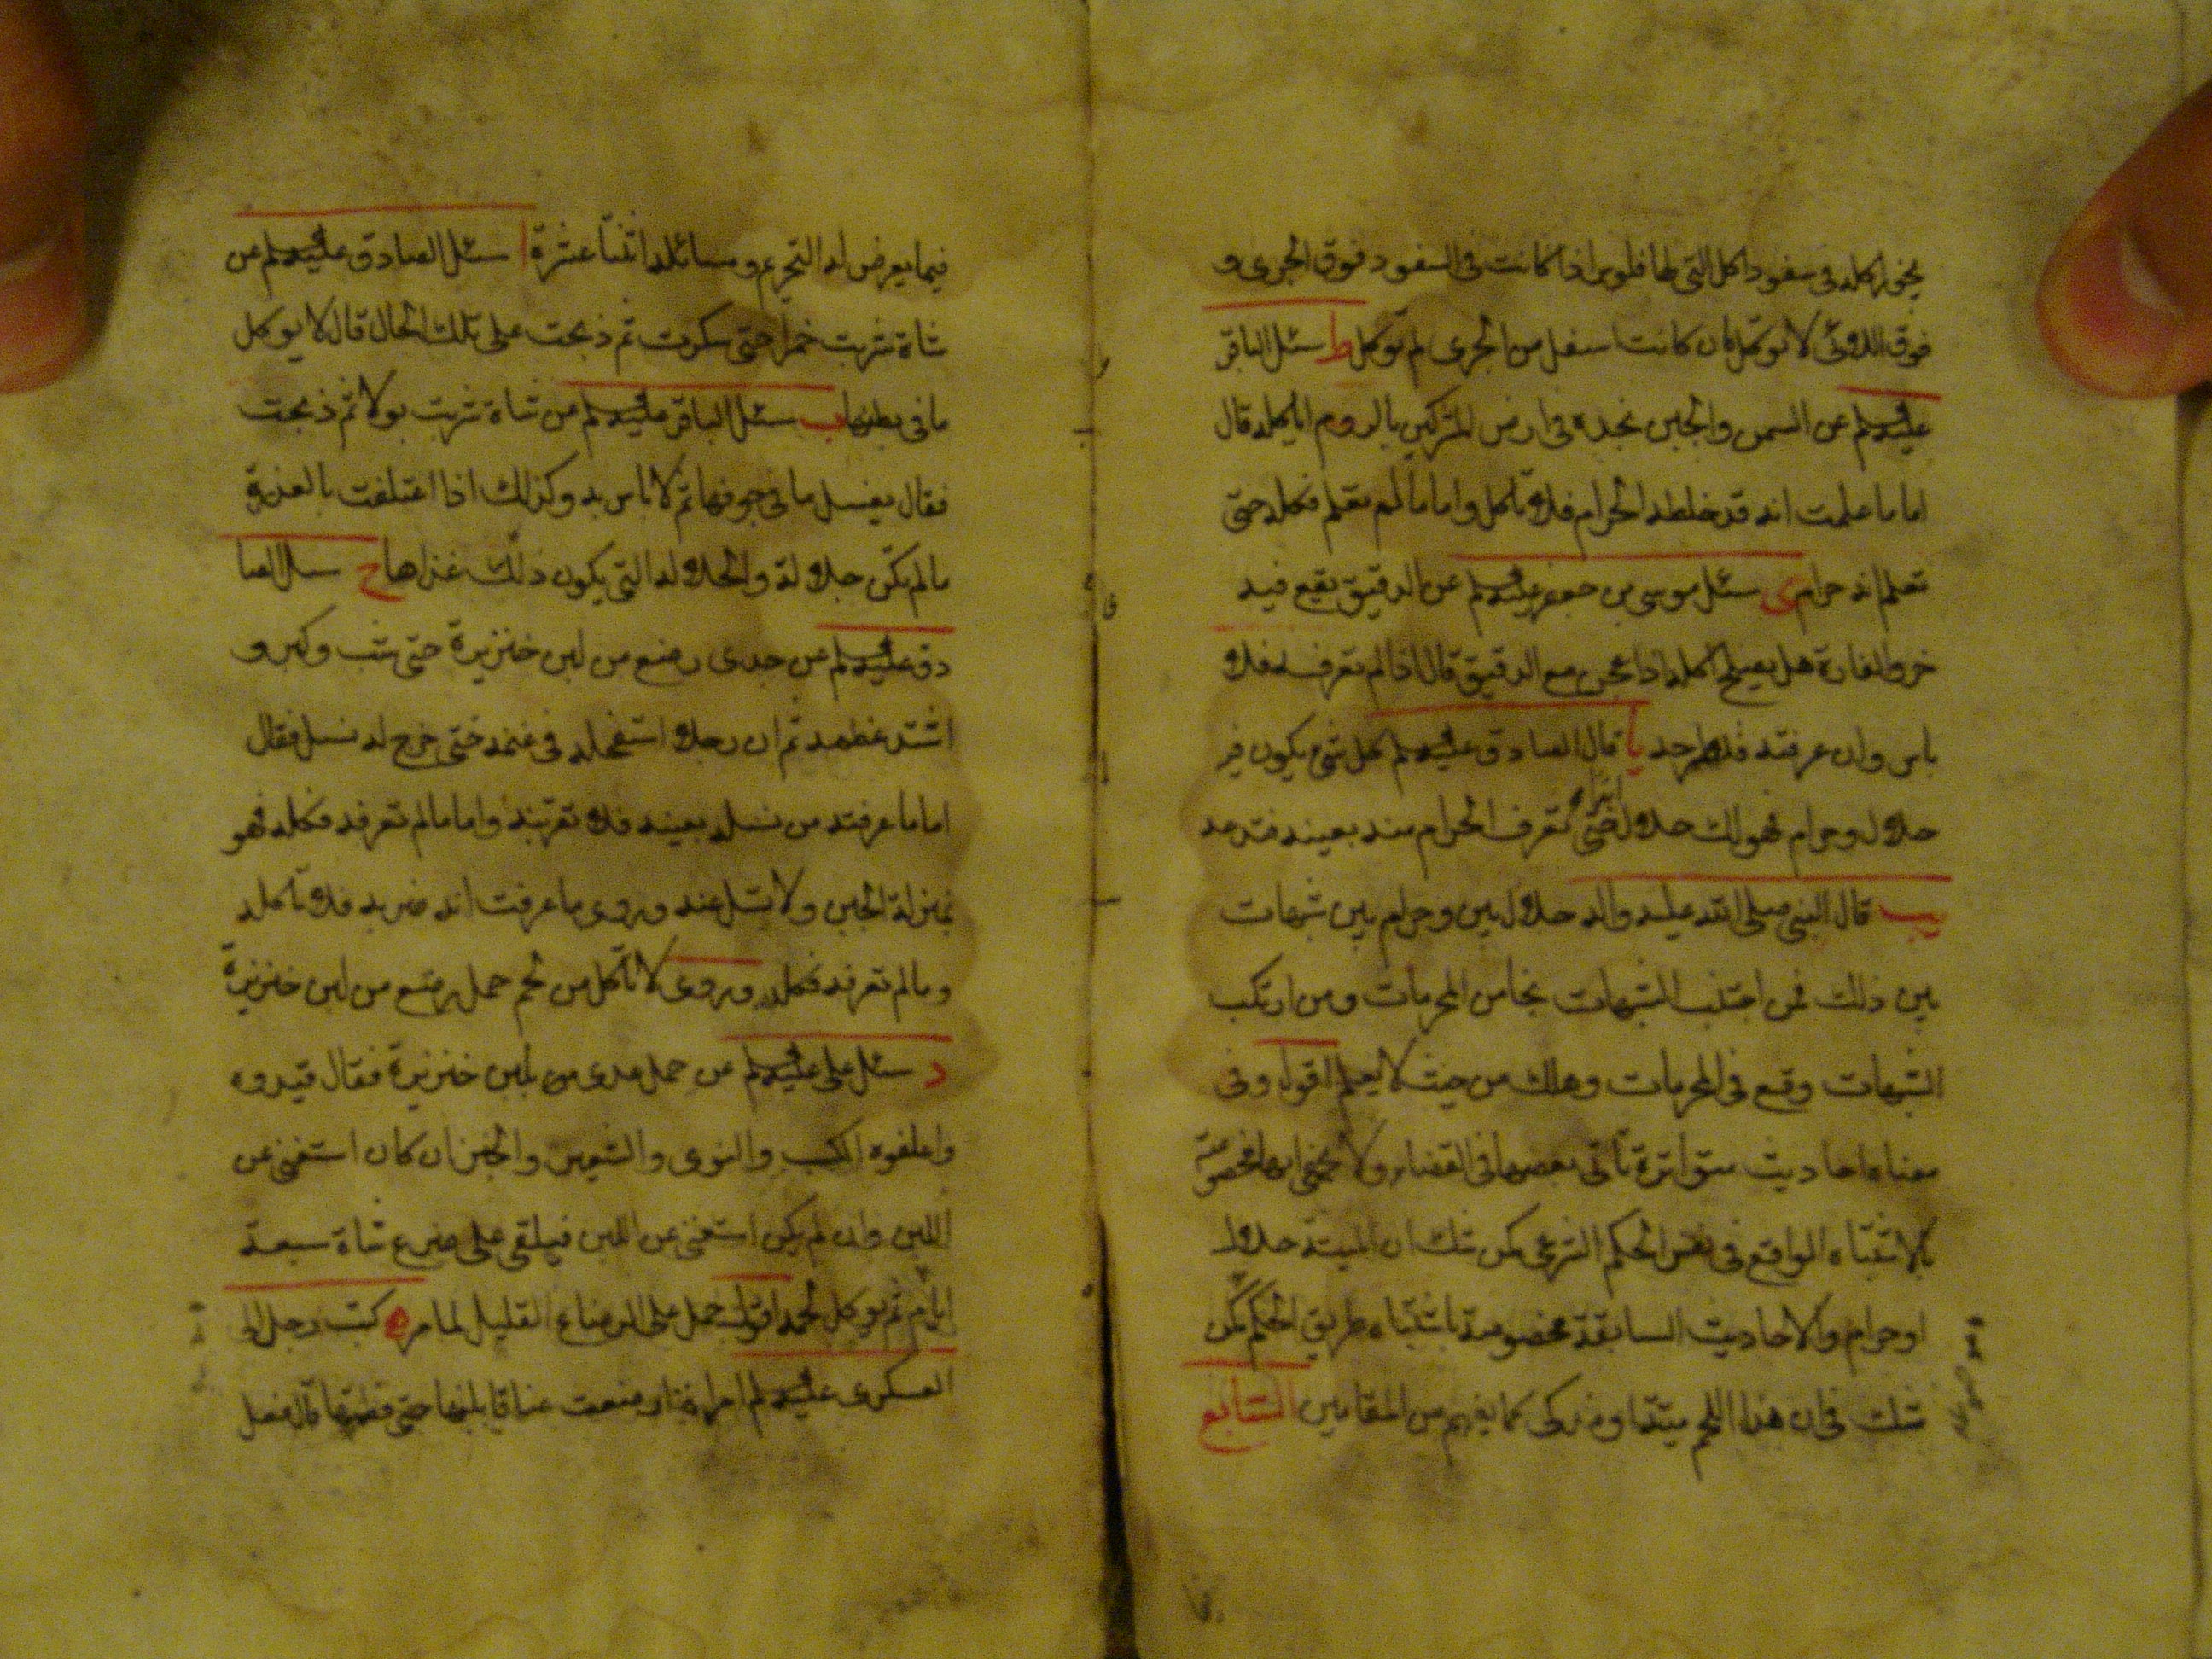 يجز اكله في سفود اكل التي لها فلوس اذا كانت في السفود فوق الجرى و
فوق اللاوتى لا توكل فان كانت اسفل من الجرى لم توكل ط سئل الباقر
عليه السلم عن السمن والجبن نجده في ارض المشركين بالروم اناكله قال
اما ما علمت انه قد خلطه الحرام فلا تاكل واما ما لم تعلم فكله حتى
تعلم انه حرام ى سئل موسى بن جعفر عليه السلم عن الدقيق يقع فيه
خرو الفارة هل يصلح اكله اذا عجن مع الدقيق قال اذا لم تعرفه فلا
باس وان عرفته فلتطرحه يا قال الصادق عليه السلم كل شئ يكون فيه
حلال وحرام فهو لك حلال ابدا حتى تعرف الحرام منه بعينه فتدعه
يب قال النبي صلى الله عليه واله حلال بين وحرام بين شبهات
بين ذلك فمن اجتنب الشبهات نجا من المحرمات ومن ارتكب
الشبهات وقع في المحرمات وهلك من حيث لا يعلم اقول وفى
معناه احاديث متواترة تاتى بعضها في القضاء ولا يخفى انها مخصوصة
بالاشتباه الواقع في نفس الحكم الشرعى كمن شك ان الميتة حلال
او حرام والاحاديث السابقة مخصوصة باشتباه طريق الحكم كمن
شك في ان هذا اللحم ميتة او مذكى كما يفهم من المقامين السابع
فيما يعرض له التحريم ومسائله اثنتا عشرة ا سئل الصادق عليه السلم عن
شاة شربت خمرا حتى سكرت ثم ذبحت على تلك الحال قال لا يوكل
ما في بطنها ب سئل الباقر عليه السلم عن شاة شربت بولا ثم ذبحت
فقال يغسل ما في جوفها ثم لا باس به وكذلك اذا اعتلفت بالعذرة
ما لم يكن جلالة والجلالة التي يكون ذلك غذاها ج سئل الصا
دق عليه السلم عن جدى رضع من لبن خنزيرة حتى شب وكبر و
اشتد عظمه ثم ان رجلا استفحله في غنمه حتى خرج له نسل فقال
اما ما عرفته من نسله بعينه فلا تقربنه واما ما لم تعرفه فكله فهو
بمنزلة الجبن ولا تسل عنه وروى ما عرفت انه ضربه فلا تاكله
وما لم تعرفه فكله وروى لا تاكل من لحم حمل رضع من لبن خنزيرة
د سئل على عليه السلم عن حمل غذى من لبن خنزيرة فقال قيدوه
واعلفوه الكسب والنوى والشعير والخبز ان كان استغنى عن
اللبن وان لم يكن استغنى عن اللبن فيلقى على ضرع شاة سبعة
ايام ثم يوكل لحمه اقول حمل على الرضاع القليل لما مر ه كتب رجل الى
العسكرى عليه السلم امراة ارضعت عناقا بلبنها حتى فطمتها قال فعل